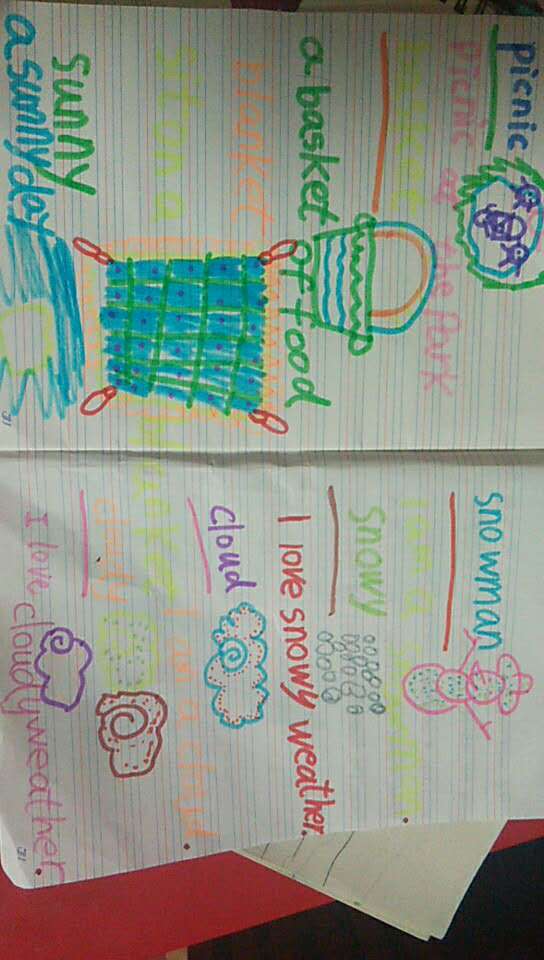 picnic
Picnic at the Park
basket
a basket of food
blanket
sit on a blanket
sunny
a sunny day
31
snowman
I am a snowman.
snowy
I love snowy weather.
cloud
I am a cloud.
cloudy
I love cloudy weather.
31